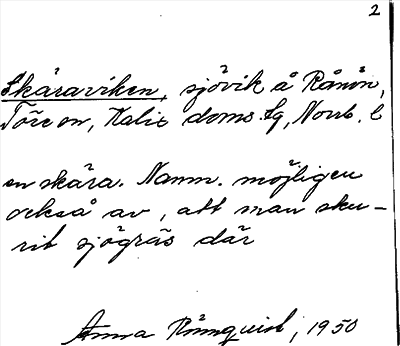 2
Skäraviken, sjövik å Rånön,
Töre sn, Kalix doms. lg, Norrb. l
en skära. Namn. möjligen
också av, att man sku-
rit sjögräs där
Anna Rönnquist, 1950